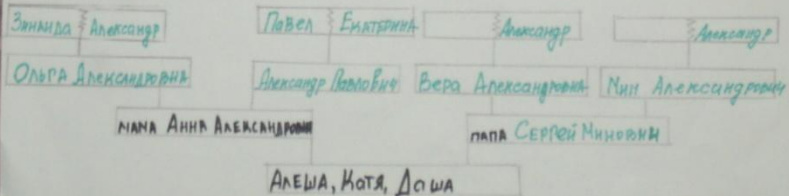 Зинаида Александр Павел Екатерина Александр Александр
Ольга Александровна Александр Павлович Вера Александровна Мин Александрович
мама Анна Александровна папа Сергей Минович
Алеша, Катя, Даша